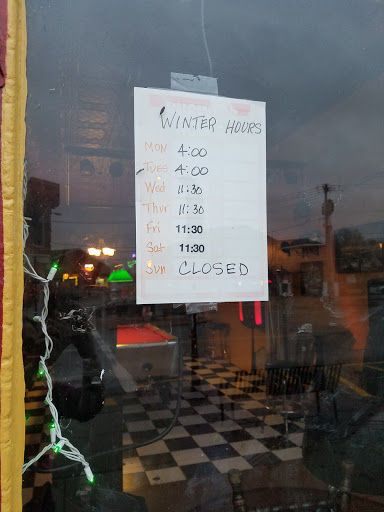 WINTER HOURS
MON 4:00
TUES 4:00
Wed 11:30
Thur 11:30
Fri 11:30
Sat 11:30
Sun CLOSED